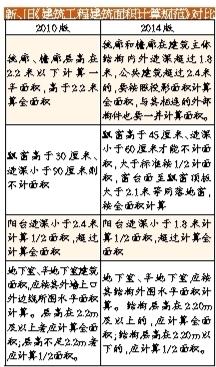 新、旧《建筑工程建筑面积计算规范》对比
2010版
2014版
挑廊、檐廊层高在
2.2米以下计算一
半面积,高于2.2米
算全面积
挑廊和檐廊在建筑主体
结构内外进深超过1.8
米,公共建筑超过2.4米
的,要按照投影面积计算
全面积,与其相连的外部
构件也要一并计算面积。
飘窗高于30厘米、
进深小于90厘米则
不计面积
飘窗高于45厘米、进深
小于60厘米才能不计面
积,大于标准按1/2计面
积,窗台面至飘窗顶板
大于2.1米等同落地窗,
按全面积计算
阳台进深小于2.4米
计算1/2面积,超过
计算全面积
阳台进深小于1.8米计
算1/2面积,超过计算全
面积
地下室、半地下室建筑
面积,应按其外墙上口
外边线所围水平面积
计算。层高在2.2m
及以上者应计算全面
积;层高不足2.2m者
应计算1/2面积。
地下室、半地下室,应按
其结构外围水平面积计
算。结构层高在2.20m
及以上的,应计算全面
积;结构层高在2.20m以
下的,应计算1/2面积。